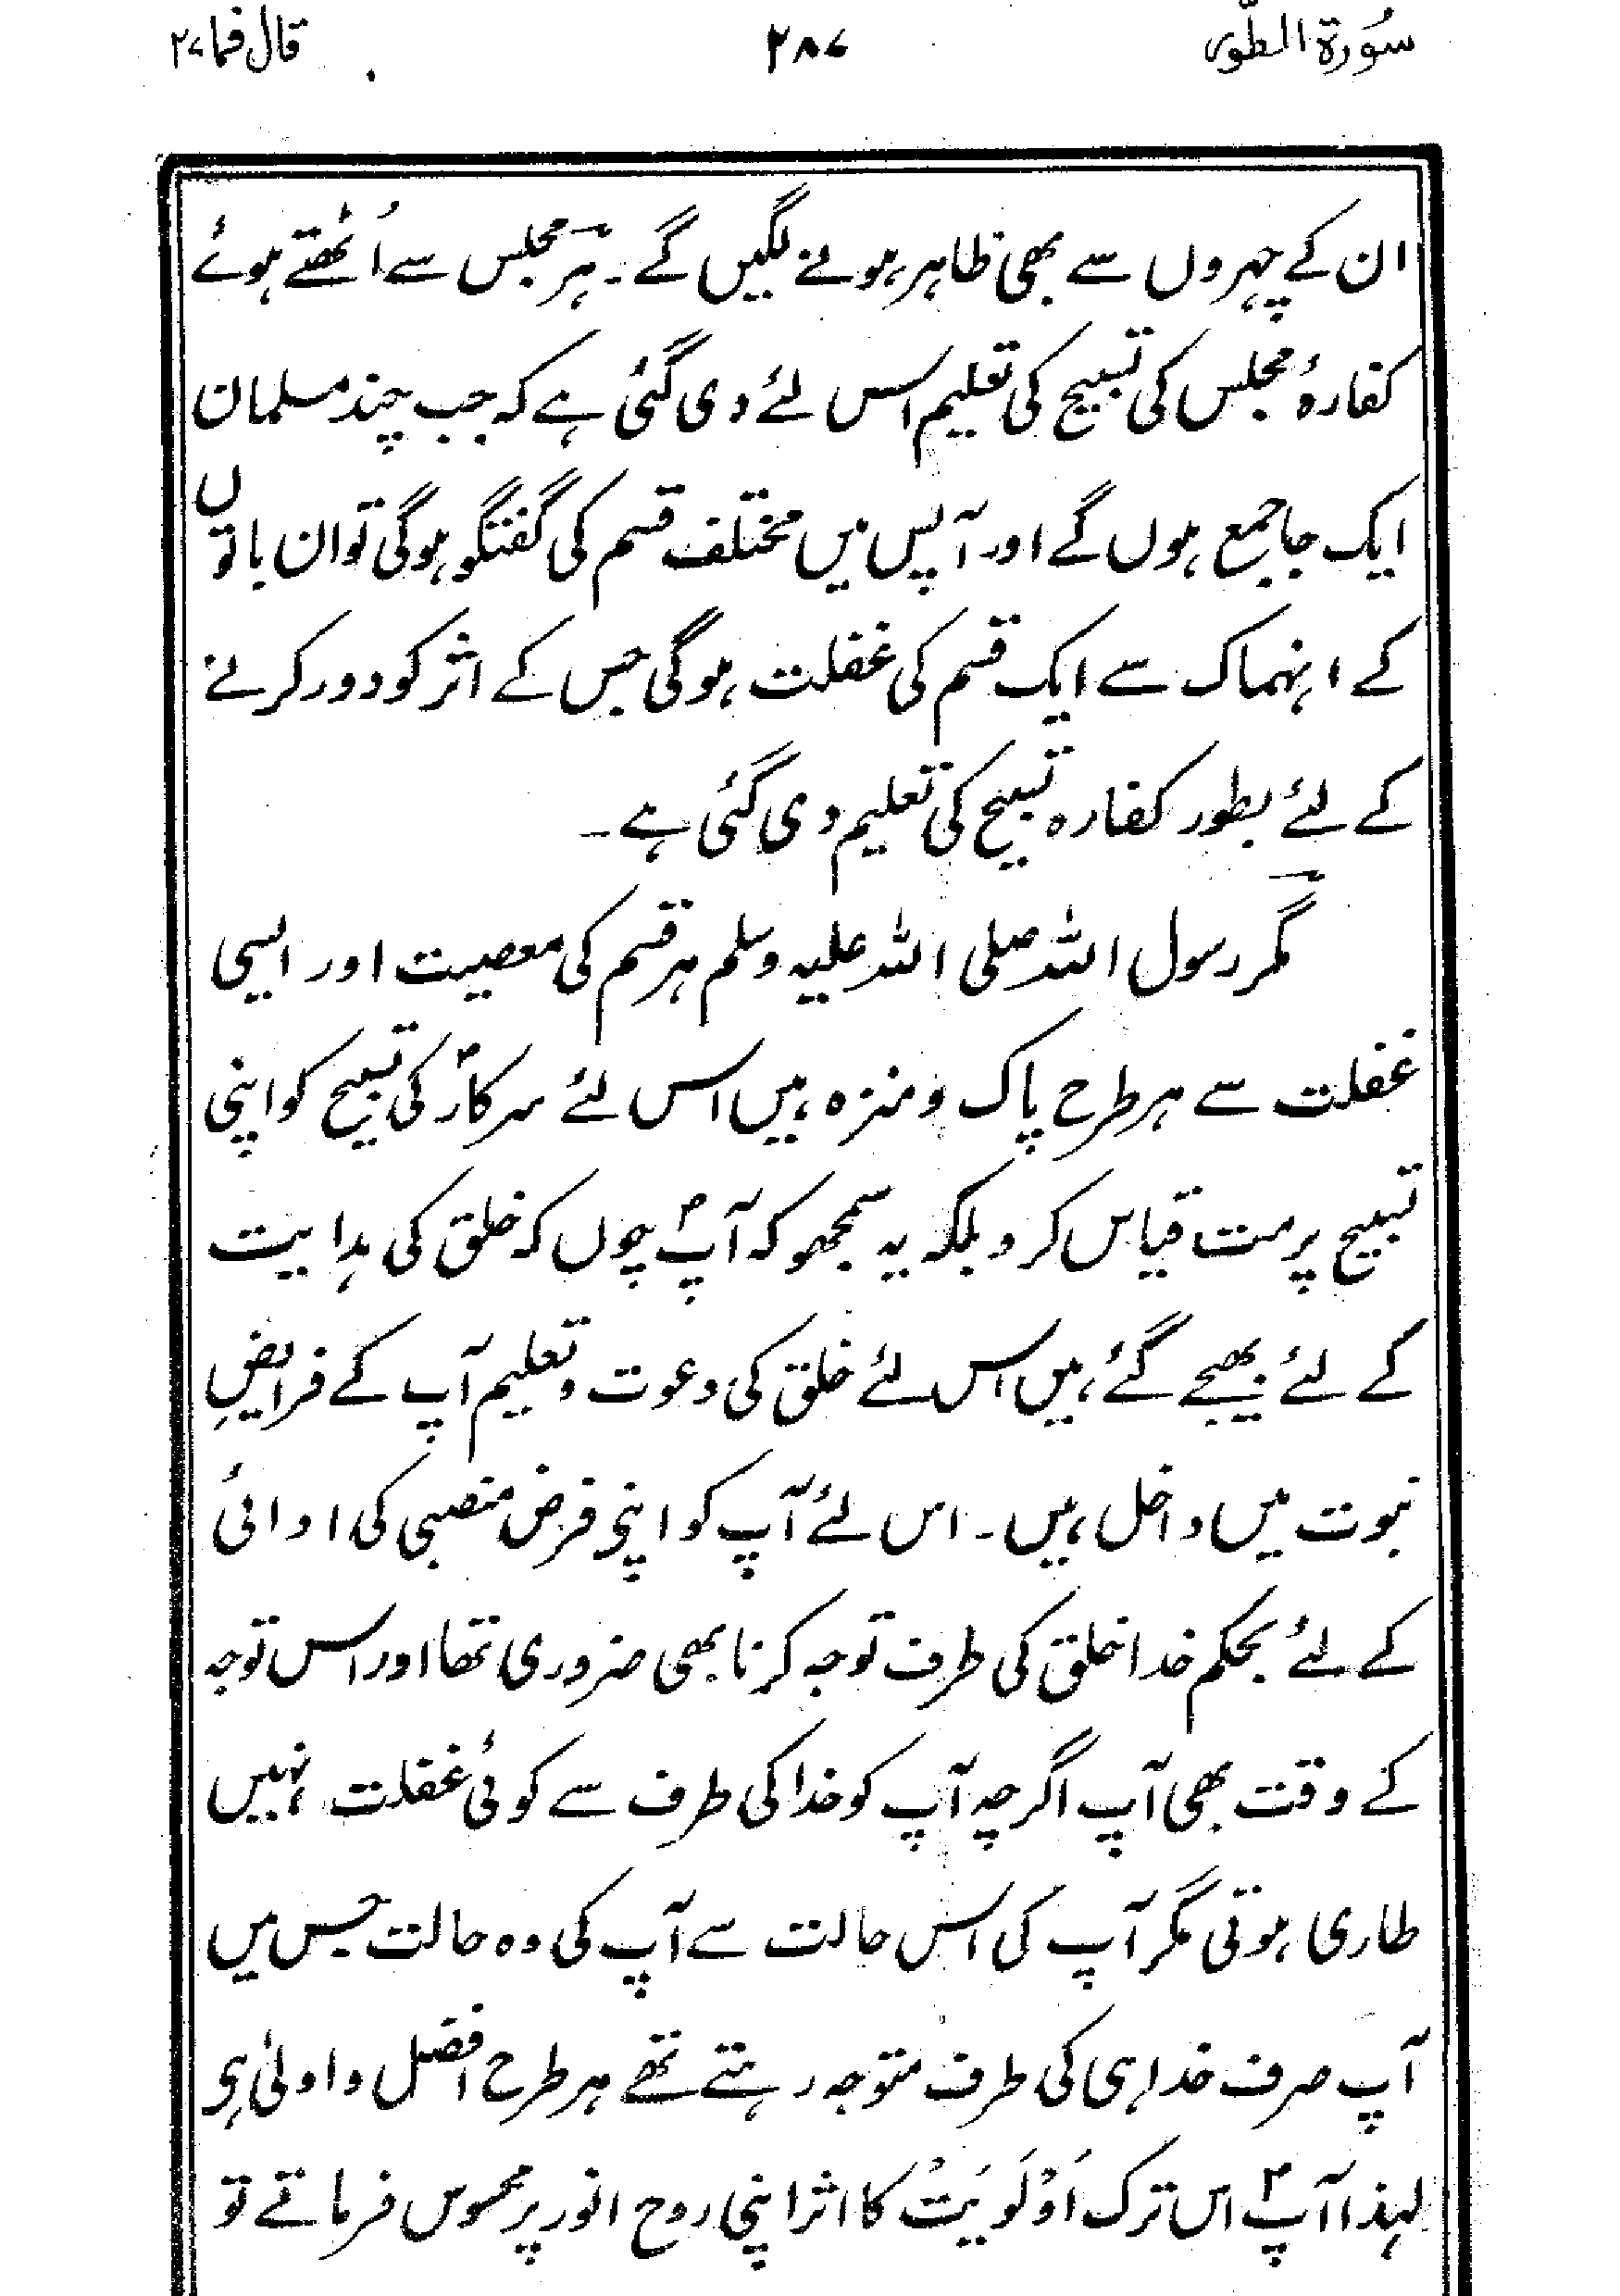 سُورة الطّور ۲۸۷ قال فما ۲۷
ان کے چہروں سے بھی ظاہر ہونے لگیں گے۔ ہر مجلس سے اُٹھتے ہوئے
کفارۂ مجلس کی تسبیح کی تعلیم اس لئے دی گئی ہے کہ جب چند مسلمان
ایک جا جمع ہوں گے اور آپس میں مختلف قسم کی گفتگو ہوگی تو ان باتوں
کے انہماک سے ایک قسم کی غفلت ہوگی جس کے اثر کو دور کرنے
کے لئے بطور کفارہ تسبیح کی تعلیم دی گئی ہے۔
مگر رسول اللہ صلی اللہ علیہ وسلم ہر قسم کی معصیت اور ایسی
غفلت سے ہر طرح پاک و منزہ ہیں اس لئے سرکارؐ کی تسبیح کو اپنی
تسبیح پر مت قیاس کرو بلکہ یہ سمجھو کہ آپؐ چوں کہ خلق کی ہدایت
کے لئے بھیجے گئے ہیں اس لئے خلق کی دعوت و تعلیم آپ کے فرایضِ
نبوت میں داخل ہیں۔ اس لئے آپ کو اپنی فرض منصبی کی ادائی
کے لئے بحکم خدا خلق کی طرف توجہ کرنا بھی ضروری تھا اور اس توجہ
کے وقت بھی آپ اگرچہ آپ کو خدا کی طرف سے کوئی غفلت نہیں
طاری ہوتی مگر آپ کی اس حالت سے آپ کی وہ حالت جس میں
آپ صرف خدا ہی کی طرف متوجہ رہتے تھے ہر طرح افضل و اولیٰ ہی
لہذا آپؐ اس ترک اَوْلَوِیَتْ کا اثر اپنی روح انور پر محسوس فرماتے تو